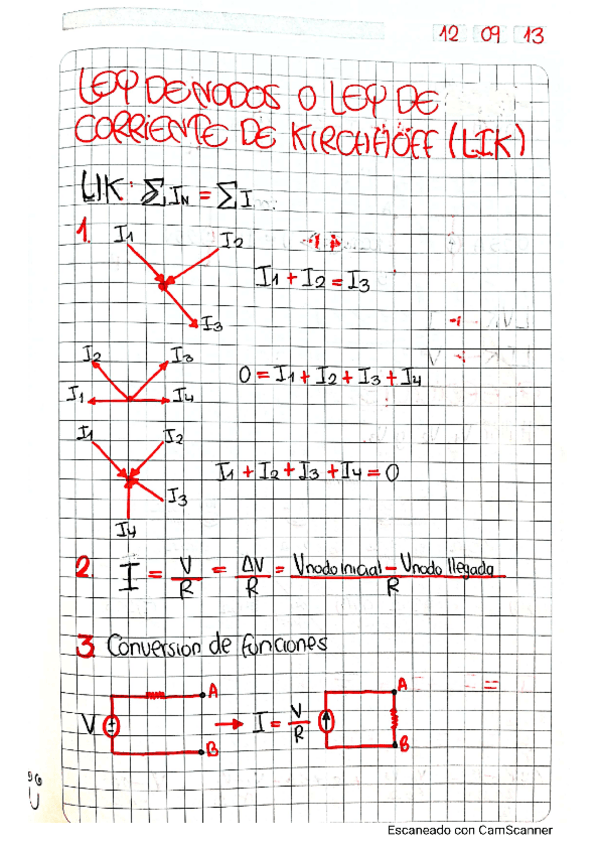 12 09 13
LEY DE NODOS O LEY DE
CORRIENTE DE KIRCHHOFF (LIK)
LIK: ∑IN = ∑I
1.
I1 I2
I1 + I2 = I3
I3
I2 I3
0 = I1 + I2 + I3 + I4
I1 I4
I1 I2
I1 + I2 + I3 + I4 = 0
I3
I4
2. I = V/R = ΔV/R = Vnodo Inicial - Vnodo llegada/R
3. Conversion de funciones
A A
V ± → I = V/R
B B
Escaneado con CamScanner